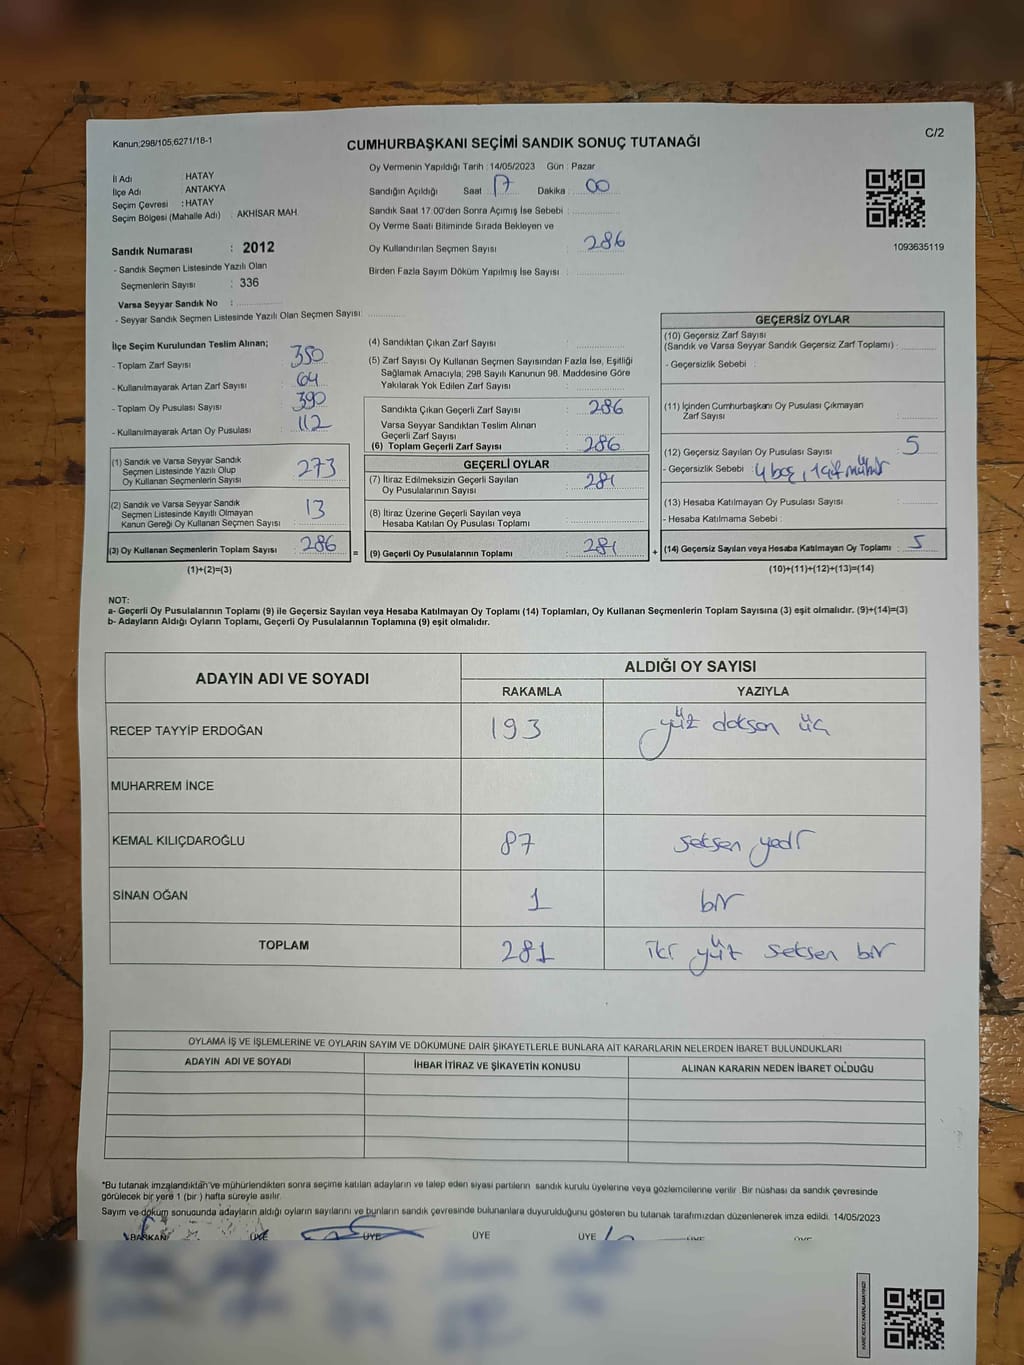 Kanun;298/105;6271/18-1
C/2
CUMHURBAŞKANI SEÇİMİ SANDIK SONUÇ TUTANAĞI
İl Adı : HATAY
İlçe Adı : ANTAKYA
Seçim Çevresi : HATAY
Seçim Bölgesi (Mahalle Adı) : AKHİSAR MAH.
Sandık Numarası : 2012
- Sandık Seçmen Listesinde Yazılı Olan
Seçmenlerin Sayısı : 336
Varsa Seyyar Sandık No :
- Seyyar Sandık Seçmen Listesinde Yazılı Olan Seçmen Sayısı:
Oy Vermenin Yapıldığı Tarih : 14/05/2023 Gün : Pazar
Sandığın Açıldığı Saat : 17 Dakika : 00
Sandık Saat 17:00'den Sonra Açımış İse Sebebi :
Oy Verme Saati Bitiminde Sırada Bekleyen ve
Oy Kullandırılan Seçmen Sayısı : 286
Birden Fazla Sayım Döküm Yapılmış İse Sayısı :
1093635119
İlçe Seçim Kurulundan Teslim Alınan;
- Toplam Zarf Sayısı : 350
- Kullanılmayarak Artan Zarf Sayısı : 64
- Toplam Oy Pusulası Sayısı : 390
- Kullanılmayarak Artan Oy Pusulası : 112
(1) Sandık ve Varsa Seyyar Sandık
Seçmen Listesinde Yazılı Olup
Oy Kullanan Seçmenlerin Sayısı : 273
(2) Sandık ve Varsa Seyyar Sandık
Seçmen Listesinde Kayıtlı Olmayan
Kanun Gereği Oy Kullanan Seçmen Sayısı : 13
(3) Oy Kullanan Seçmenlerin Toplam Sayısı : 286
(1)+(2)=(3)
(4) Sandıktan Çıkan Zarf Sayısı :
(5) Zarf Sayısı Oy Kullanan Seçmen Sayısından Fazla İse, Eşitliği
Sağlamak Amacıyla; 298 Sayılı Kanunun 98. Maddesine Göre
Yakılarak Yok Edilen Zarf Sayısı :
Sandıkta Çıkan Geçerli Zarf Sayısı : 286
Varsa Seyyar Sandıktan Teslim Alınan
Geçerli Zarf Sayısı :
(6) Toplam Geçerli Zarf Sayısı : 286
GEÇERLİ OYLAR
(7) İtiraz Edilmeksizin Geçerli Sayılan
Oy Pusulalarının Sayısı : 281
(8) İtiraz Üzerine Geçerli Sayılan veya
Hesaba Katılan Oy Pusulası Toplamı :
= (9) Geçerli Oy Pusulalarının Toplamı : 281
GEÇERSİZ OYLAR
(10) Geçersiz Zarf Sayısı
(Sandık ve Varsa Seyyar Sandık Geçersiz Zarf Toplamı) :
- Geçersizlik Sebebi :
(11) İçinden Cumhurbaşkanı Oy Pusulası Çıkmayan
Zarf Sayısı :
(12) Geçersiz Sayılan Oy Pusulası Sayısı : 5
- Geçersizlik Sebebi : 4 boş, 1 çift mühür
(13) Hesaba Katılmayan Oy Pusulası Sayısı :
- Hesaba Katılmama Sebebi :
+ (14) Geçersiz Sayılan veya Hesaba Katılmayan Oy Toplamı : 5
(10)+(11)+(12)+(13)=(14)
NOT:
a- Geçerli Oy Pusulalarının Toplamı (9) ile Geçersiz Sayılan veya Hesaba Katılmayan Oy Toplamı (14) Toplamları, Oy Kullanan Seçmenlerin Toplam Sayısına (3) eşit olmalıdır. (9)+(14)=(3)
b- Adayların Aldığı Oyların Toplamı, Geçerli Oy Pusulalarının Toplamına (9) eşit olmalıdır.
ADAYIN ADI VE SOYADI
ALDIĞI OY SAYISI
RAKAMLA YAZIYLA
RECEP TAYYİP ERDOĞAN 193 yüz doksan üç
MUHARREM İNCE
KEMAL KILIÇDAROĞLU 87 seksen yedi
SİNAN OĞAN 1 bir
TOPLAM 281 iki yüz seksen bir
OYLAMA İŞ VE İŞLEMLERİNE VE OYLARIN SAYIM VE DÖKÜMÜNE DAİR ŞİKAYETLERLE BUNLARA AİT KARARLARIN NELERDEN İBARET BULUNDUKLARI
ADAYIN ADI VE SOYADI İHBAR İTİRAZ VE ŞİKAYETİN KONUSU ALINAN KARARIN NEDEN İBARET OLDUĞU
*Bu tutanak imzalandıktan ve mühürlendikten sonra seçime katılan adayların ve talep eden siyasi partilerin sandık kurulu üyelerine veya gözlemcilerine verilir. Bir nüshası da sandık çevresinde
görülecek bir yere 1 (bir ) hafta süreyle asılır.
Sayım ve döküm sonucunda adayların aldığı oyların sayılarını ve bunların sandık çevresinde bulunanlara duyurulduğunu gösteren bu tutanak tarafımızdan düzenlenerek imza edildi. 14/05/2023
BAŞKAN ÜYE ÜYE ÜYE ÜYE